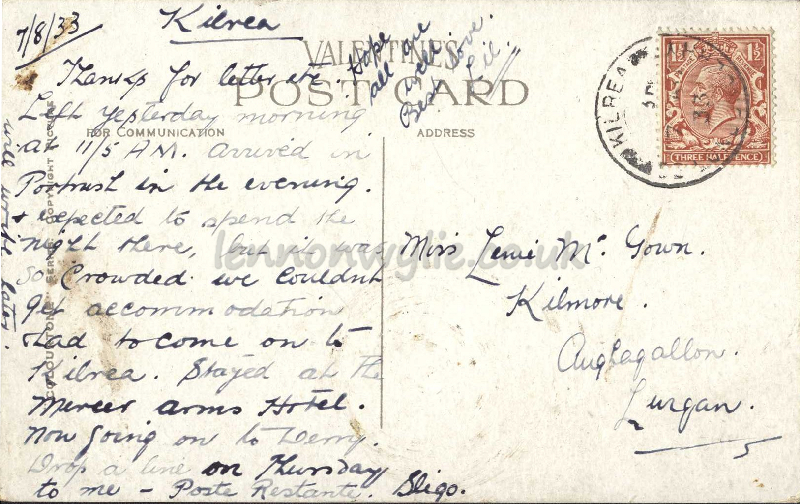 7/8/33
Kilrea
VALENTINE'S
POST CARD
FOR COMMUNICATION
ADDRESS
Thanks for letter etc.
Left yesterday morning
at 11/5 AM. Arrived in
Portrush in the evening.
+ expected to spend the
night there, but it was
so crowded we couldn't
get accommodation
Had to come on to
Kilrea. Stayed at the
Mercer Arms Hotel.
Now going on to Derry.
Drop a line on Thursday
to me - Poste Restante. Sligo.
will write later.
Hope
all are
well.
Best love.
Lil
Miss Lenie McGown.
Kilmore.
Aughagallon.
Lurgan.
5
KILREA
THREE HALFPENCE
1½
1½
COPYRIGHT PICTURE
SERIES
lennonwylie.co.uk